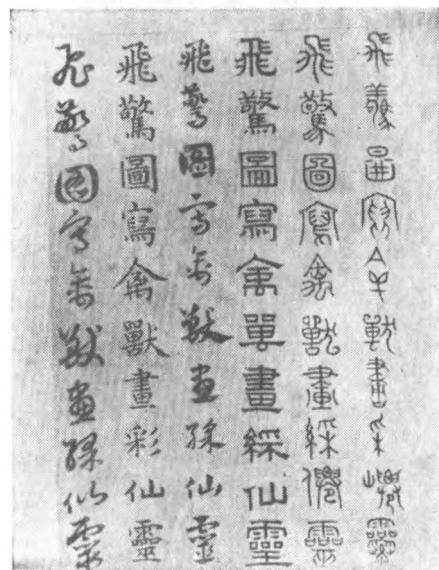 飛驚圖寫禽獸畫采仙靈
飛驚圖寫禽獸畫綵僊靈
飛驚圖寫禽嘼畫綵仙靈
飛驚圖寫禽獸畫綵仙靈
飛驚圖寫禽獸畫彩仙靈
飛驚圖寫禽獸畫綵仙靈